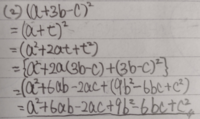 (2) (a+3b-c)²
=(a+t)²
=(a²+2at+t²)
={a²+2a(3b-c)+(3b-c)²}
=(a²+6ab-2ac+(9b²-6bc+c²)
=a²+6ab-2ac+9b²-6bc+c²